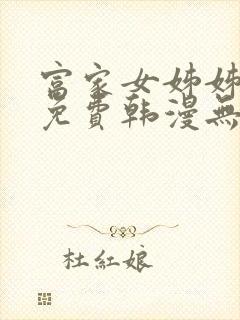 富家女姊姊
免費韩漫無
杜紅娘